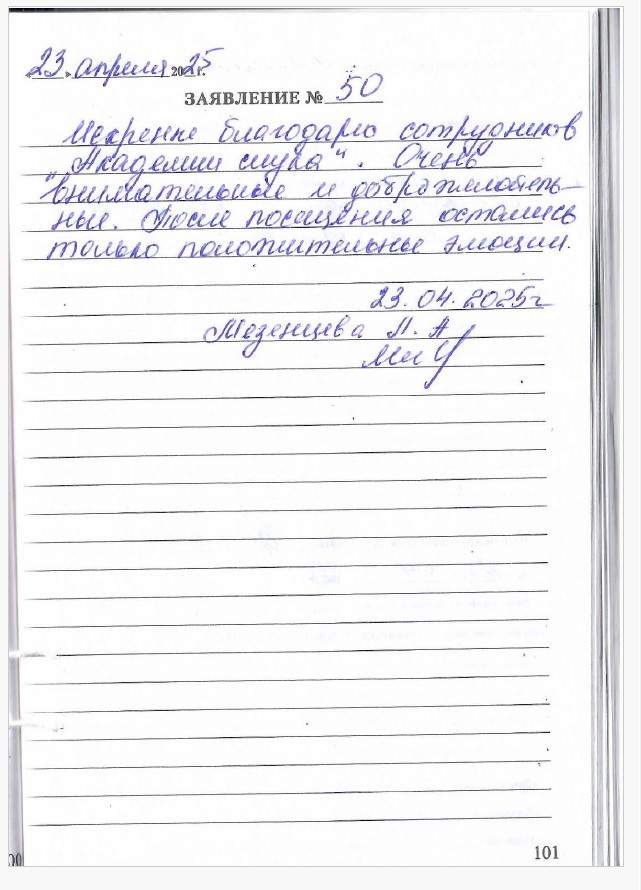 «23» апреля 2025 г.
ЗАЯВЛЕНИЕ № 50
Искренне благодарю сотрудников
"Академии слуха". Очень
внимательные и доброжелатель-
ные. После посещения остались
только положительные эмоции.
23.04.2025г
Мезенцева Л. А
101